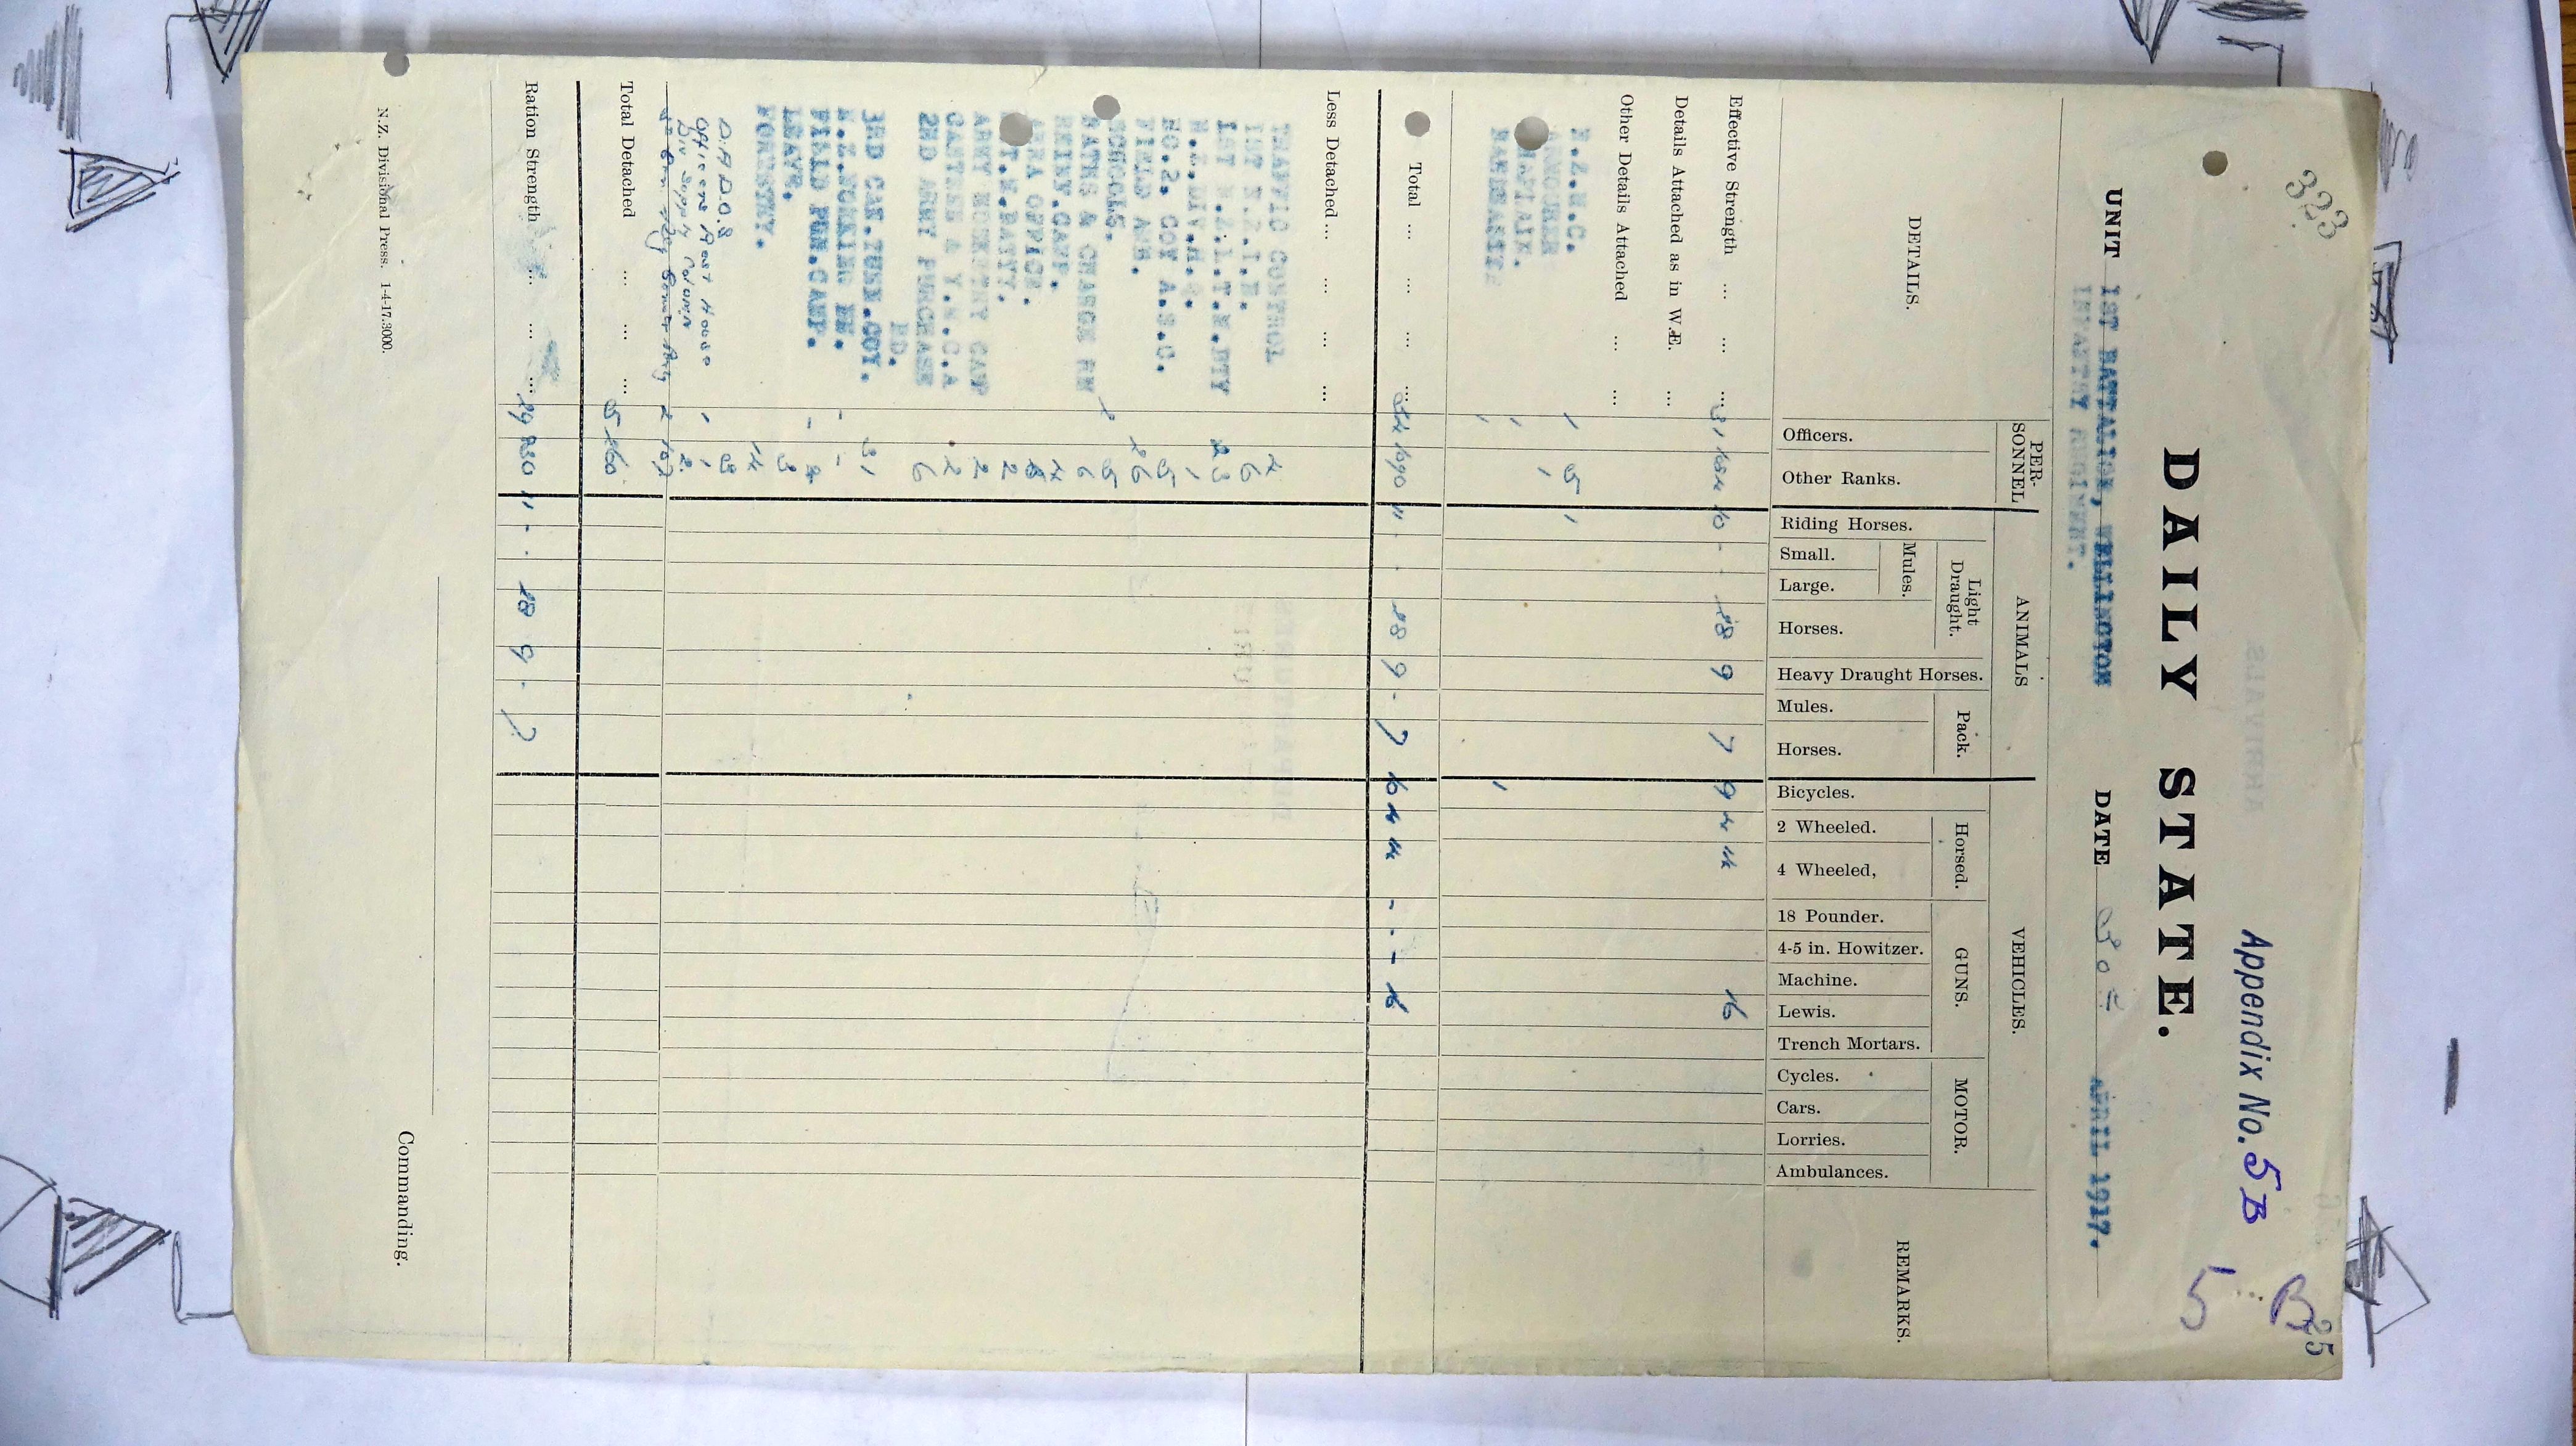 323
Appendix No. 5B
5 B
25
DAILY STATE.
UNIT 1ST BATTALION, WELLINGTON
INFANTRY REGIMENT.
DATE 30th APRIL 1917.
DETAILS.
PER-
SONNEL
Officers.
Other Ranks.
ANIMALS
Riding Horses.
Light
Draught.
Mules.
Small.
Large.
Horses.
Heavy Draught Horses.
Pack.
Mules.
Horses.
VEHICLES.
Bicycles.
Horsed.
2 Wheeled.
4 Wheeled,
GUNS.
18 Pounder.
4-5 in. Howitzer.
Machine.
Lewis.
Trench Mortars.
MOTOR.
Cycles.
Cars.
Lorries.
Ambulances.
REMARKS.
Effective Strength ... ... ... 31 1084 10 - - 18 9 7 9 4 14 16
Details Attached as in W.E. ...
Other Details Attached ... ...
N.Z.M.C. 1 5 1
ARMOURER 1
CHAPLAIN. 1
1 1
Total ... ... ... 34 1090 11 - - 18 9 - 7 10 4 14 - - - 16
Less Detached ... ... ...
TRAFFIC CONTROL 4
6
1ST N.Z.L.T.M.BTY 23
N.Z.DIV.H.Q. 1
NO.2. COY A.S.C. 5
FIELD AMB. 26
SCHOOLS. 1 5
BATHS & CHARGE RM 6
REINF.CAMP. 4
AREA OFFICE.
2
ARMY MUSKETRY CAMP 2
CANTEEN & Y.M.C.A 2
2ND ARMY PURCHASE 6
BD.
3RD CAN.TUNN.COY. 31
N.Z.WORKING BN. - -
FIELD PUN.CAMP. - 4
LEAVE. 3
FORESTRY. 14
D.A.D.O.S 3
Officers Rest House 1 1
Div Supply Column 2
Total Detached ... ... ... 5 260
Ration Strength ... ... ... 29 830 11 - - 18 9 - 7
Commanding.
N.Z. Divisional Press. 1-4-17.3000.